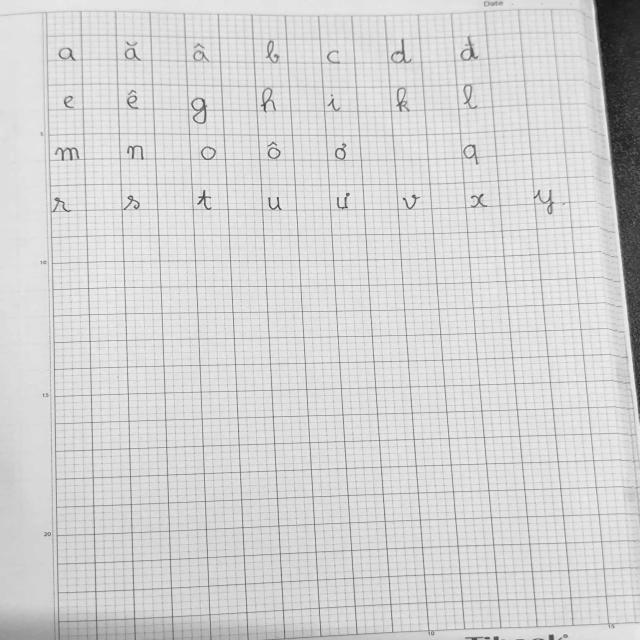 Date
a ă â b c d đ
e ê g h i k l
m n o ô ơ q
r s t u ư v x y
5
10
15
20
10
15